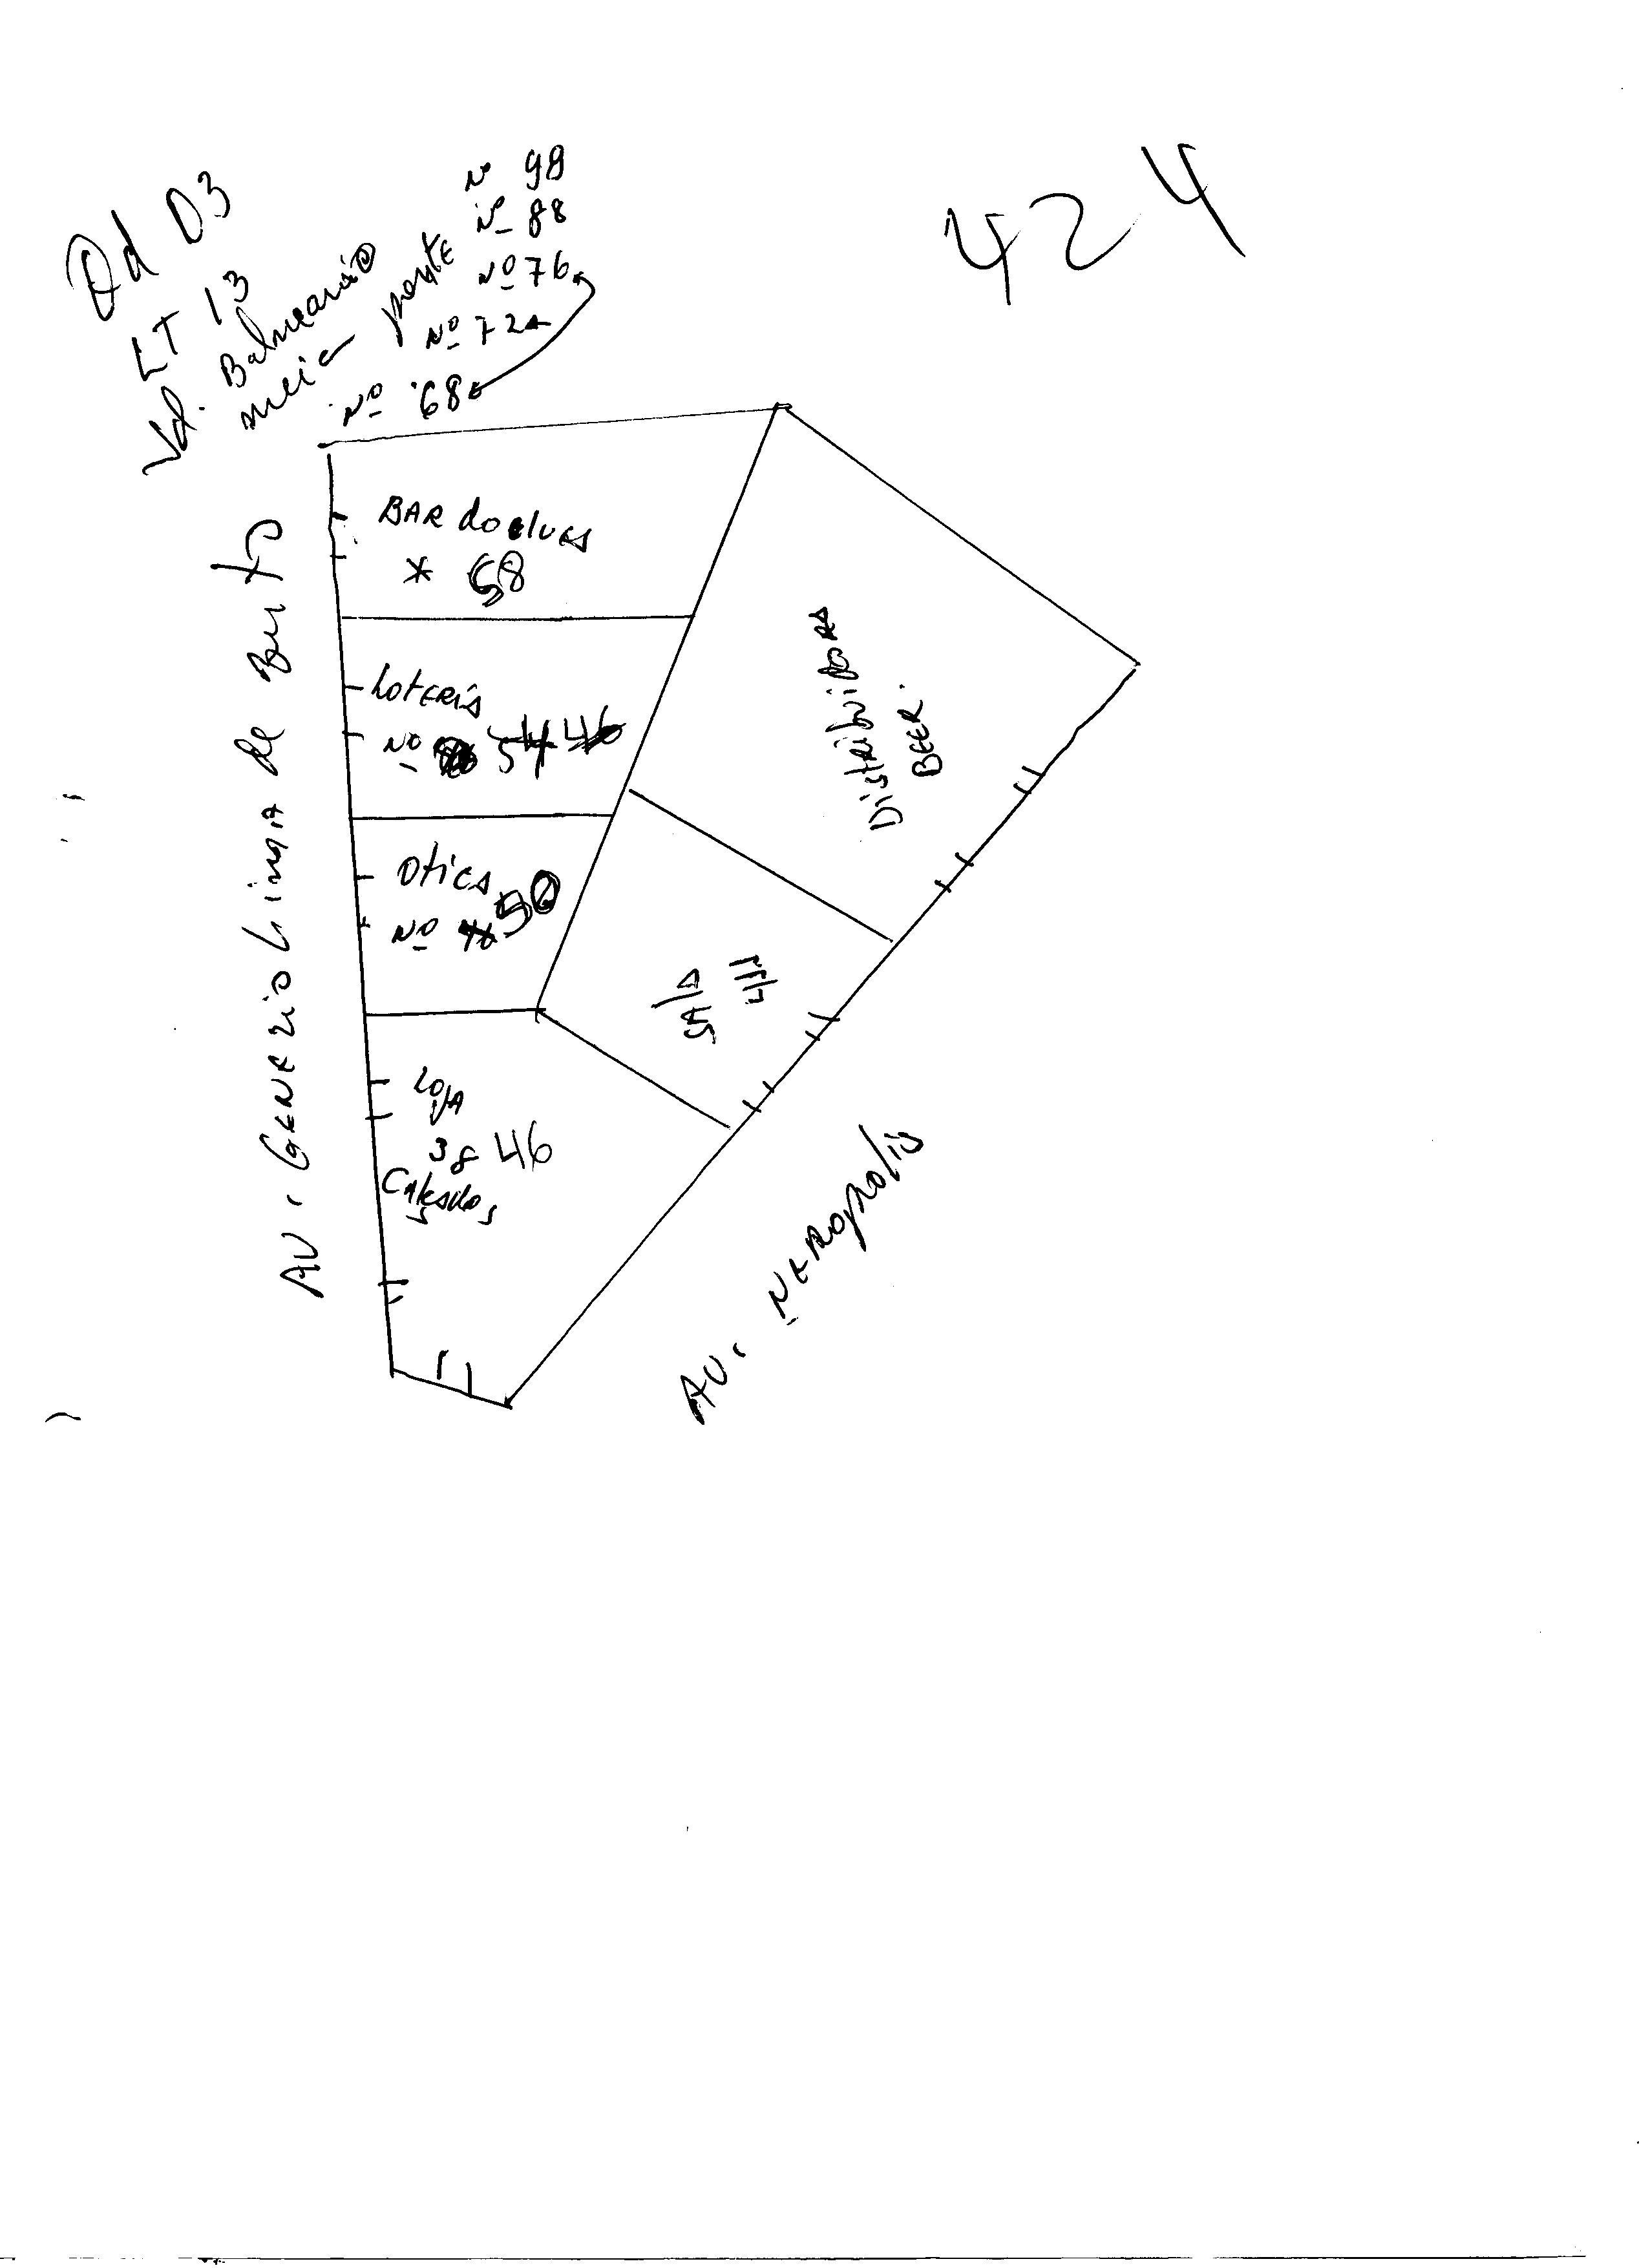 424
Qd 03
LT 13
Vd. Balneario
meia ponte
No 98
No 88
No 76
No 72
No 68
Av. GENEZIO Lima de Brito
BAR do
* 58
LOTERIA
No 54 46
Otica
No 50
LOJA
38 46
Calsados
Distribuidora
BEER.
SALA
Av. NEROPOLIS